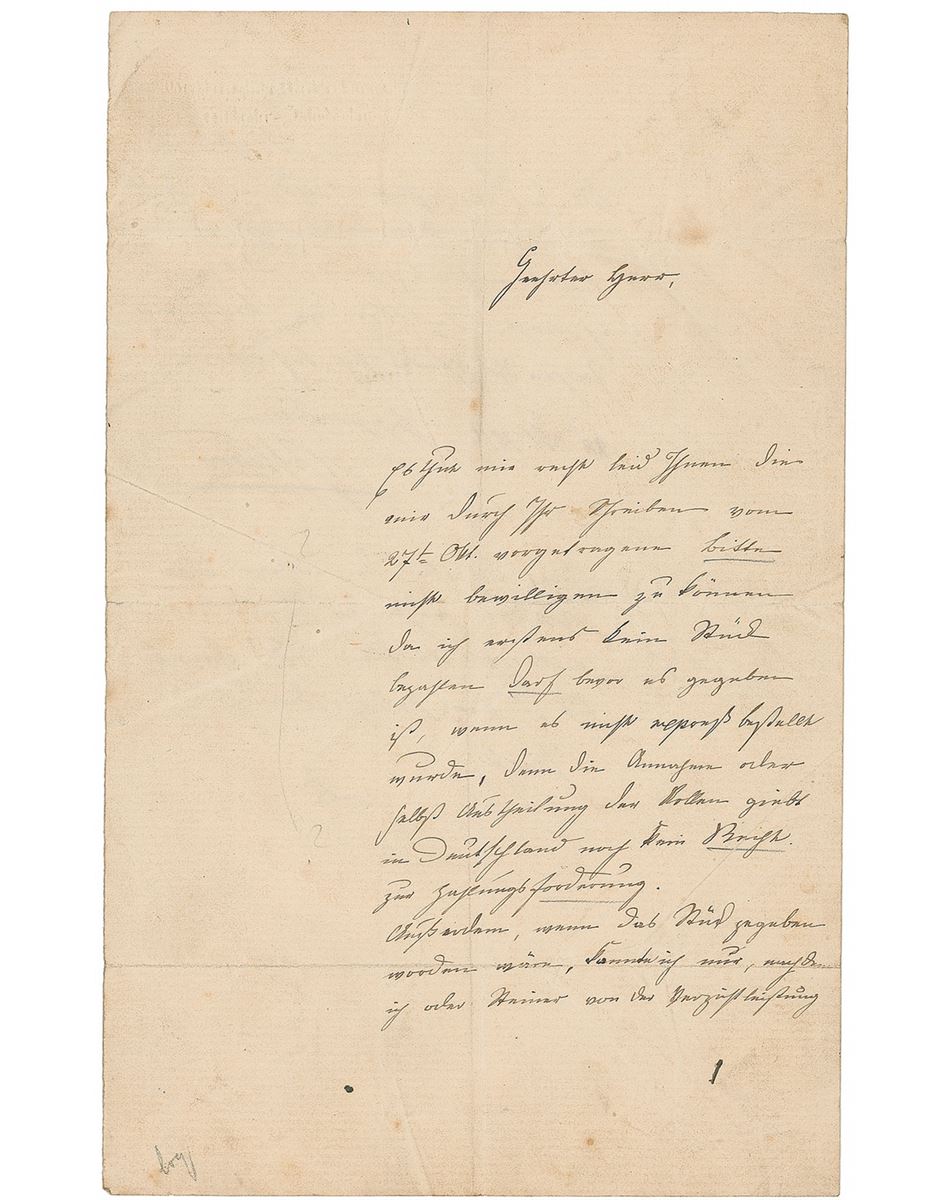 Geehrter Herr,
Es thut mir recht leid Ihnen die
mir durch Ihr Schreiben vom
27t Okt. vorgetragene Bitte
nicht bewilligen zu können
da ich erstens kein Stück
bezahlen darf bevor es gegeben
ist, wenn es nicht express bestellt
wurde, denn die Annahme oder
selbst Austheilung der Rollen giebt
in Deutschland noch kein Recht
zur Zahlungsforderung.
Außerdem, wenn das Stück gegeben
worden wäre, könnte ich nur, nachdem
ich oder Steiner von der Verzichtleistung